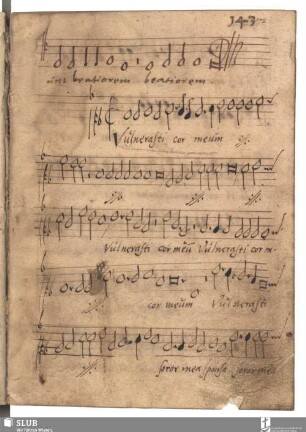 143
beatiorem beatiorem
Vulnerasti cor meum
Vulnerasti cor meũ Vulnerasti cor m-
cor meum Vulnerasti
soror mea sponsa soror mea
SLUB